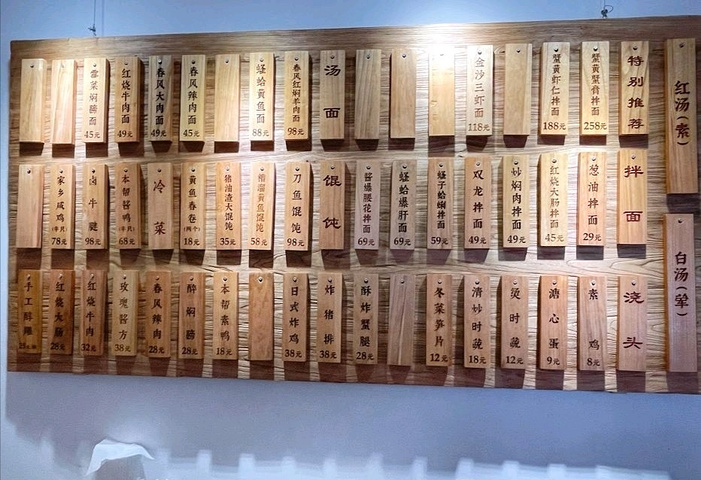 红汤(素)
白汤(荤)
特别推荐
蟹黄蟹膏拌面 258元
蟹黄虾仁拌面 188元
金沙三虾面 118元
汤面
春风红焖羊肉面 98元
蛏蛤黄鱼面 88元
春风辣肉面 45元
春风大肉面 49元
红烧牛肉面 49元
雪菜焖蹄面 45元
拌面
葱油拌面 29元
红烧大肠拌面 45元
炒焖肉拌面 49元
双龙拌面 49元
蛏子蛤蜊拌面 59元
蛏蛤爆肝面 69元
酱爆腰花拌面 69元
馄饨
刀鱼馄饨 98元
黄鱼馄饨 58元
猪油渣大馄饨 35元
黄鱼春卷(两个) 18元
冷菜
本帮酱鸭(半只) 68元
卤牛腱 98元
家乡咸鸡(半只) 78元
浇头
素鸡 8元
溏心蛋 9元
烫时蔬 12元
清炒时蔬 18元
冬菜笋片 12元
酥炸蟹腿 28元
炸猪排 38元
日式炸鸡 38元
本帮素鸭 18元
醉焖蹄 28元
春风辣肉 28元
玫瑰酱方 38元
红烧牛肉 32元
红烧大肠 28元
手工醉雕